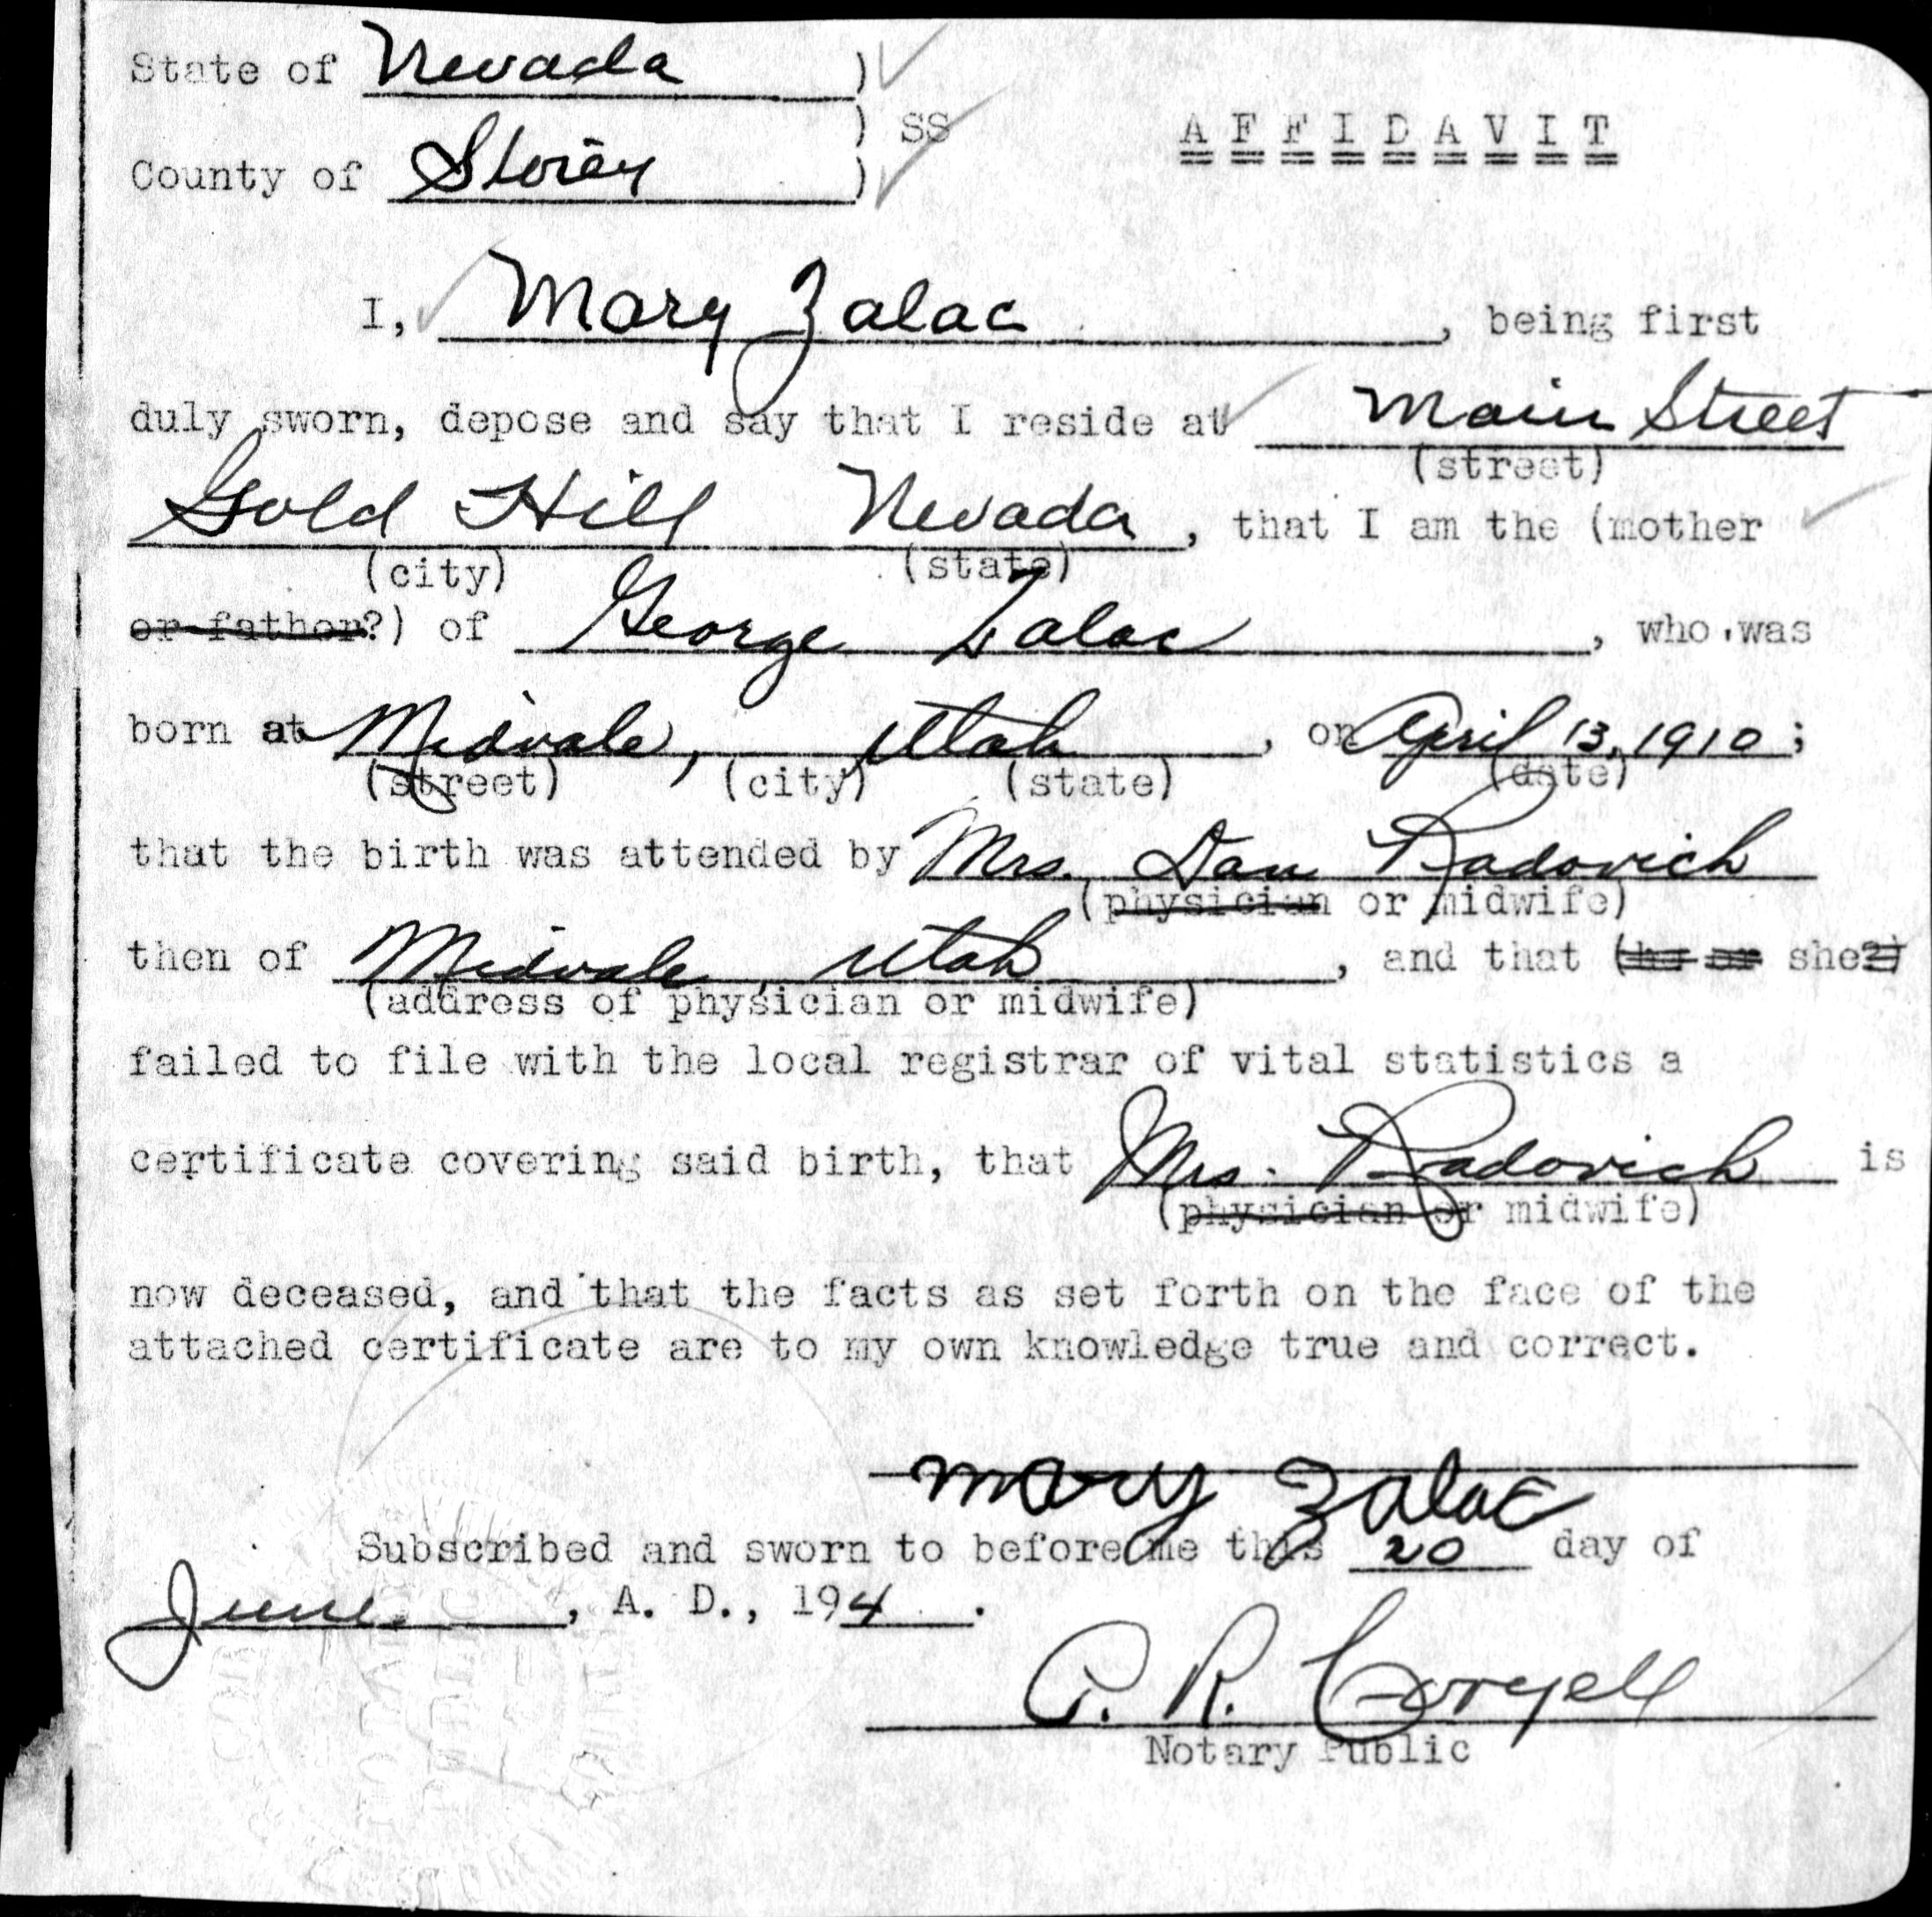 State of Nevada )
) SS
AFFIDAVIT
County of Storey )
I, Mary Zalac, being first
duly sworn, depose and say that I reside at Main Street
(street)
Gold Hill Nevada, that I am the (mother
(city) (state)
or father?) of George Zalac, who was
born at Midvale, Utah, on April 13, 1910;
(street) (city) (state) (date)
that the birth was attended by Mrs. Dan Radovich
(physician or midwife)
then of Midvale, Utah, and that (he or she?)
(address of physician or midwife)
failed to file with the local registrar of vital statistics a
certificate covering said birth, that Mrs. Radovich is
(physician or midwife)
now deceased, and that the facts as set forth on the face of the
attached certificate are to my own knowledge true and correct.
Mary Zalac
Subscribed and sworn to before me this 20 day of
June, A. D., 194 .
Coryell
Notary Public